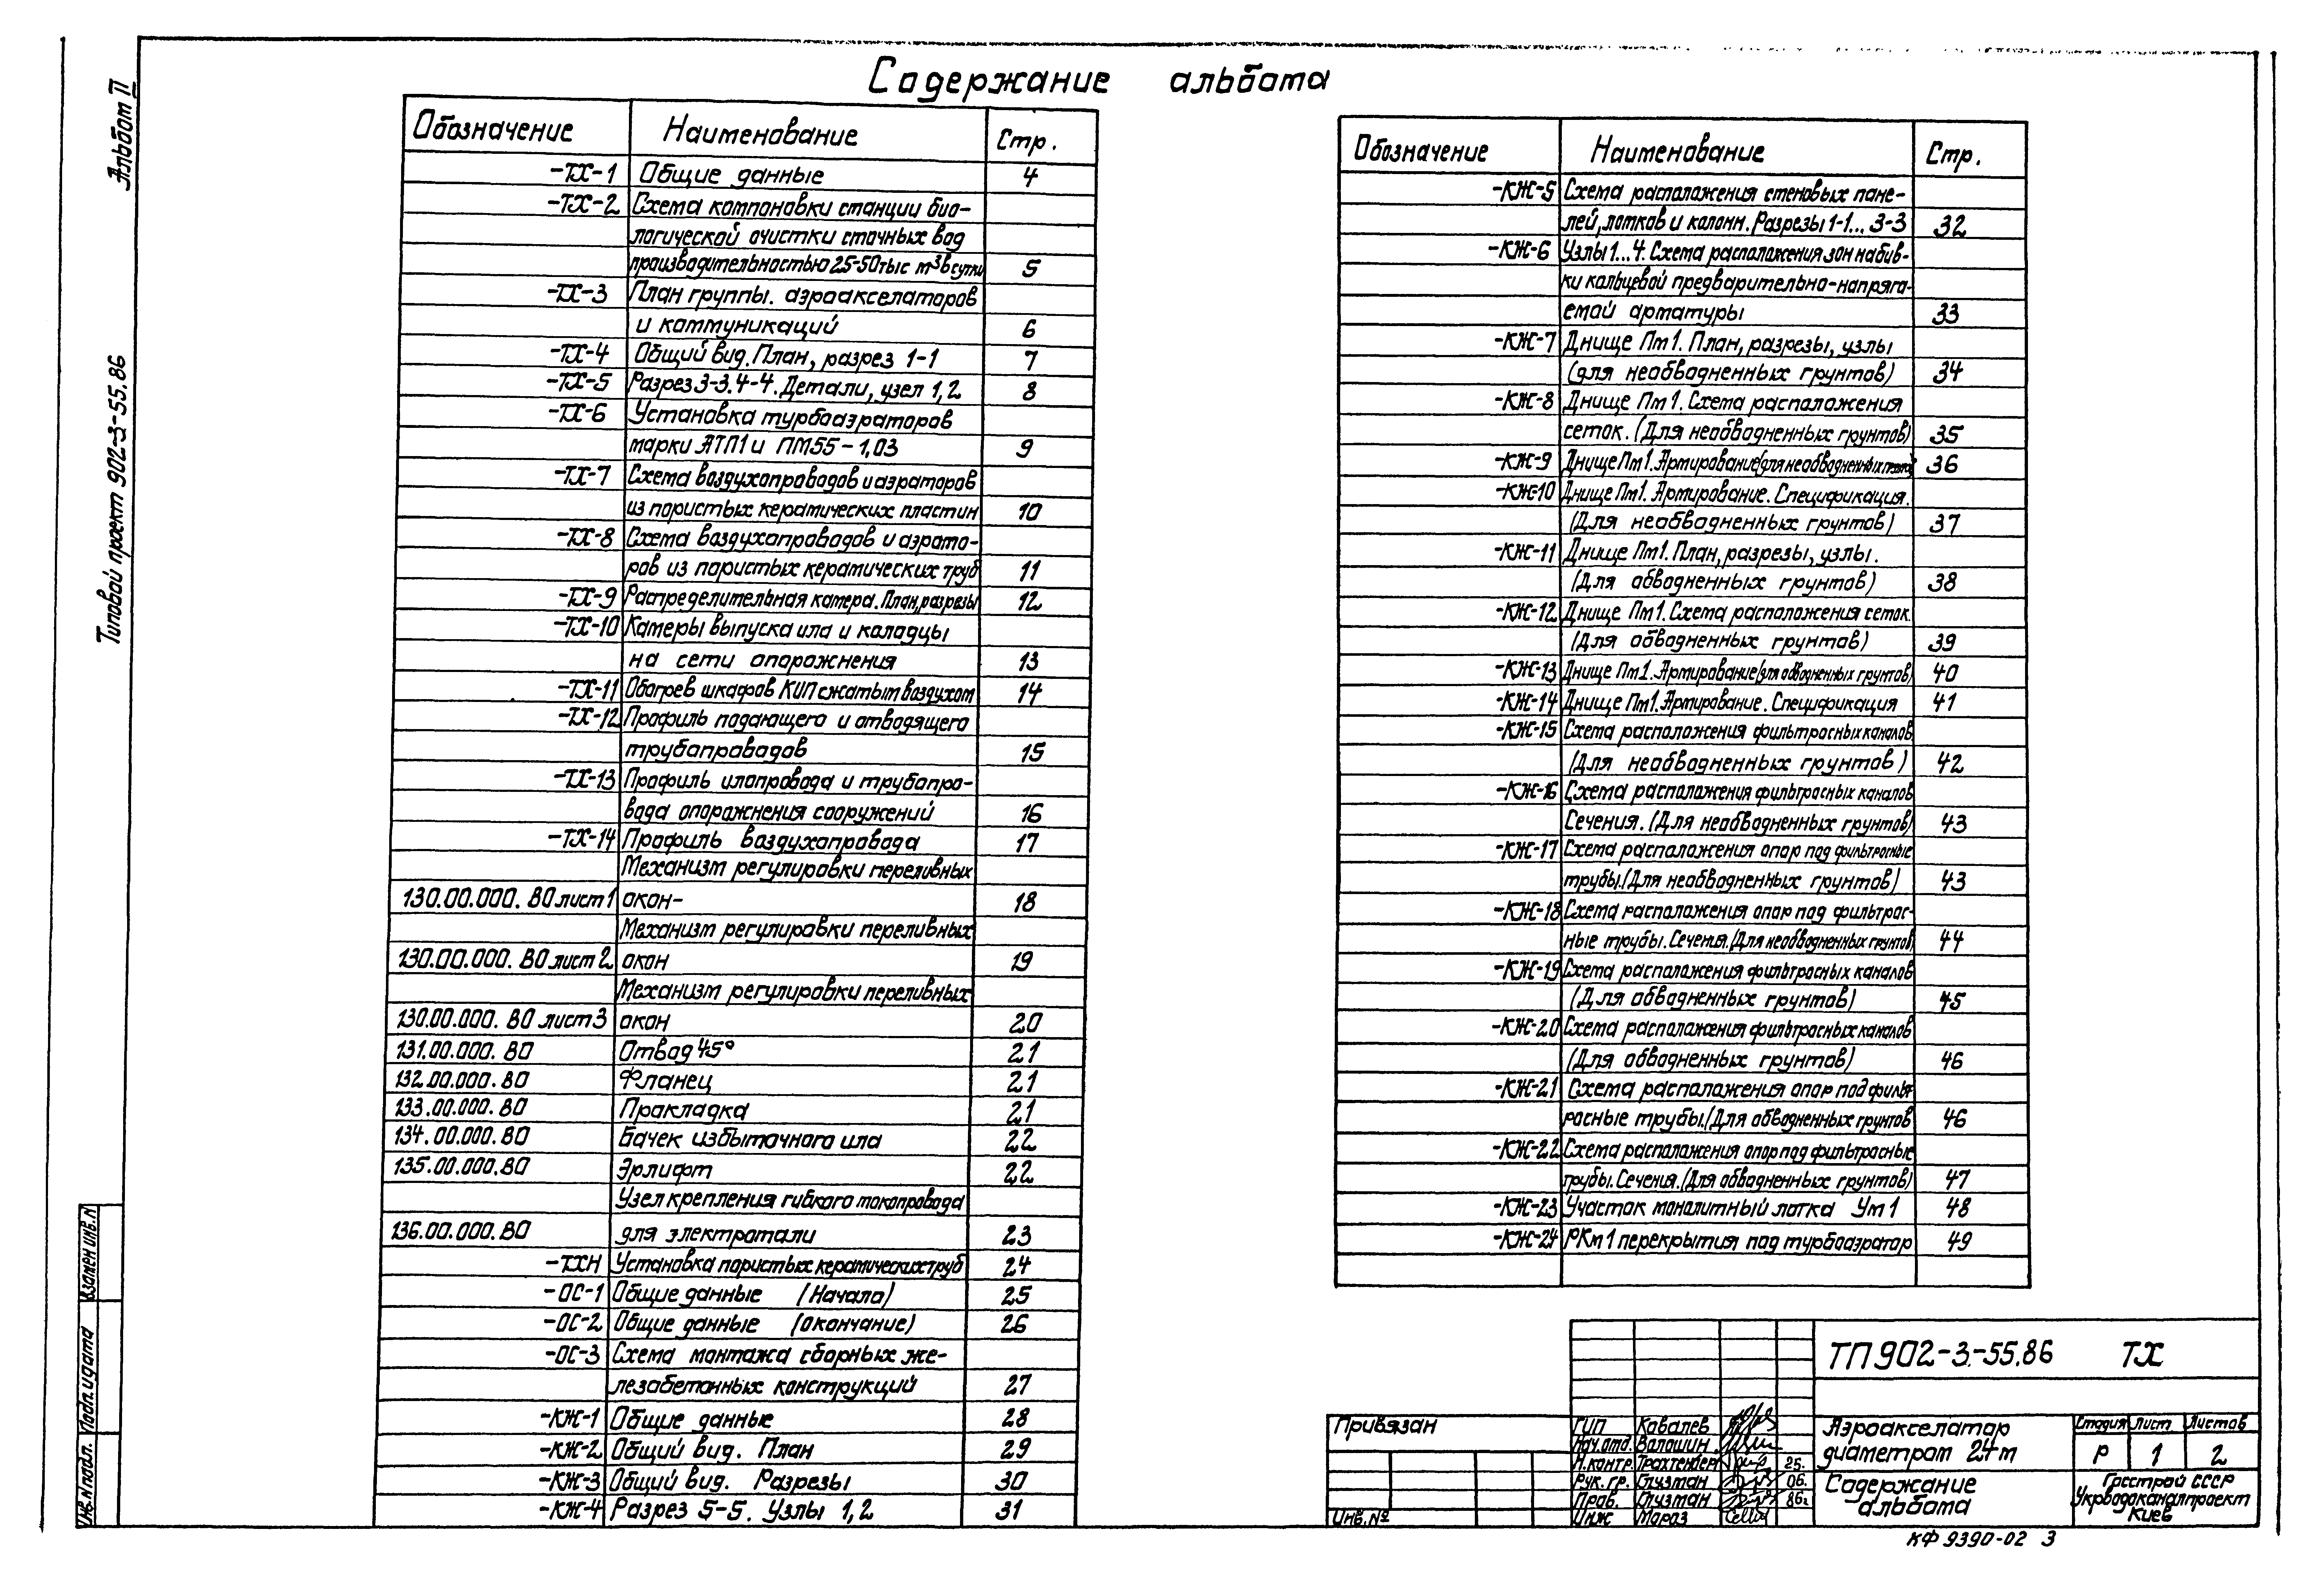 Содержание альбома
Альбом II
Типовой проект 902-3-55.86
Обозначение Наименование Стр.
-ТХ-1 Общие данные 4
-ТХ-2 Схема компоновки станции био-
логической очистки сточных вод
производительностью 25-50 тыс м³ в сутки 5
-ТХ-3 План группы. аэроакселаторов
и коммуникаций 6
-ТХ-4 Общий вид. План, разрез 1-1 7
-ТХ-5 Разрез 3-3, 4-4. Детали, узел 1,2 8
-ТХ-6 Установка турбоаэраторов
марки АТП1 и ПМ55-1,03 9
-ТХ-7 Схема воздухопроводов и аэраторов
из пористых керамических пластин 10
-ТХ-8 Схема воздухопроводов и аэрато-
ров из пористых керамических труб 11
-ТХ-9 Распределительная камера. План, разрезы 12
-ТХ-10 Камеры выпуска ила и колодцы
на сети опорожнения 13
-ТХ-11 Обогрев шкафов КИП сжатым воздухом 14
-ТХ-12 Профиль подающего и отводящего
трубопроводов 15
-ТХ-13 Профиль илопровода и трубопро-
вода опорожнения сооружений 16
-ТХ-14 Профиль воздухопровода 17
Механизм регулировки переливных
130.00.000. ВО лист 1 окон- 18
Механизм регулировки переливных
130.00.000. ВО лист 2 окон 19
Механизм регулировки переливных
130.00.000. ВО лист 3 окон 20
131.00.000. ВО Отвод 45° 21
132.00.000. ВО Фланец 21
133.00.000. ВО Прокладка 21
134.00.000. ВО Бачек избыточного ила 22
135.00.000. ВО Эрлифт 22
Узел крепления гибкого токопровода
136.00.000. ВО для электротали 23
-ТХН Установка пористых керамических труб 24
-ОС-1 Общие данные (Начало) 25
-ОС-2 Общие данные (окончание) 26
-ОС-3 Схема монтажа сборных же-
лезобетонных конструкций 27
-КЖ-1 Общие данные 28
-КЖ-2 Общий вид. План 29
-КЖ-3 Общий вид. Разрезы 30
-КЖ-4 Разрез 5-5. Узлы 1,2 31
Обозначение Наименование Стр.
-КЖ-5 Схема расположения стеновых пане-
лей, лотков и колонн. Разрезы 1-1... 3-3 32
-КЖ-6 Узлы 1...4. Схема расположения зон набив-
ки кольцевой предварительно-напряга-
емой арматуры 33
-КЖ-7 Днище Пм1. План, разрезы, узлы
(для необводненных грунтов) 34
-КЖ-8 Днище Пм1. Схема расположения
сеток. (Для необводненных грунтов) 35
-КЖ-9 Днище Пм1. Армирование (для необводненных грунтов) 36
-КЖ-10 Днище Пм1. Армирование. Спецификация.
(Для необводненных грунтов) 37
-КЖ-11 Днище Пм1. План, разрезы, узлы.
(Для обводненных грунтов) 38
-КЖ-12 Днище Пм1. Схема расположения сеток.
(Для обводненных грунтов) 39
-КЖ-13 Днище Пм1. Армирование (для обводненных грунтов) 40
-КЖ-14 Днище Пм1. Армирование. Спецификация 41
-КЖ-15 Схема расположения фильтросных каналов
(Для необводненных грунтов) 42
-КЖ-16 Схема расположения фильтросных каналов
Сечения. (Для необводненных грунтов) 43
-КЖ-17 Схема расположения опор под фильтросные
трубы. (Для необводненных грунтов) 43
-КЖ-18 Схема расположения опор под фильтрос-
ные трубы. Сечения. (Для необводненных грунтов) 44
-КЖ-19 Схема расположения фильтросных каналов
(Для обводненных грунтов) 45
-КЖ-20 Схема расположения фильтросных каналов
(Для обводненных грунтов) 46
-КЖ-21 Схема расположения опор под фильт-
росные трубы. (Для обводненных грунтов 46
-КЖ-22 Схема расположения опор под фильтросные
трубы. Сечения. (Для обводненных грунтов) 47
-КЖ-23 Участок монолитный лотка Ум1 48
-КЖ-24 РКм1 перекрытия под турбоаэратор 49
Взамен инв. N
Подп. и дата
Инв. N подл.
ТП 902-3-55.86 ТХ
Привязан
Инв. №
ГИП Ковалев
Нач. отд. Волошин
Н. контр. Трахтенберг 25.
Рук. гр. Глузман 06.
Пров. Глузман 86г
Инж Мороз
Аэроакселатор
диаметром 24 м
Стадия Лист Листов
Р 1 2
Содержание
альбома
Госстрой СССР
Укрводоканалпроект
Киев
КФ 9390-02 3